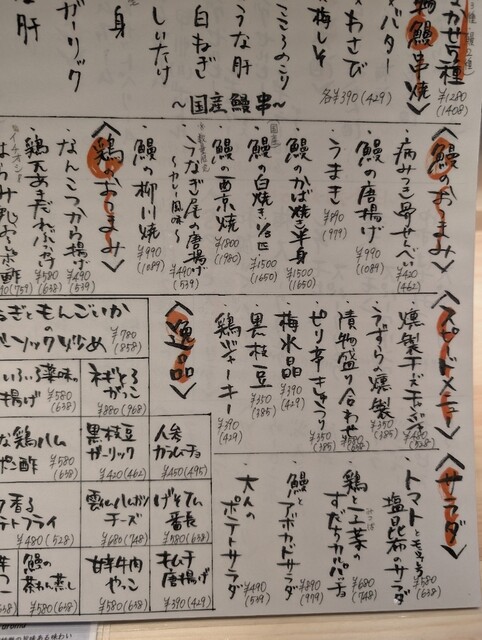 おまかせ5種
¥1280
(1408)
鰻串焼
バター
わさび
梅しそ
各¥390(429)
こころのこり
うな肝
白ねぎ
しいたけ
ガーリック
身
肝
〜国産鰻串〜
<鰻のおつまみ>
・病みつき骨せんべい ¥420(462)
・鰻の唐揚げ ¥990(1089)
・うまき ¥890(979)
・鰻のかば焼き半身 ¥1500(1650)
・鰻の白焼き1/2匹 ¥1500(1650)
国産
・鰻の西京焼 ¥1800(1980)
・うなぎ尾の唐揚げ
〜カレー風味〜 ¥490(539)
・鰻の柳川焼 ¥990(1089)
<鶏のおつまみ>
・なんこつから揚げ ¥490(539)
・鶏天あまだれぶっかけ ¥580(638)
イチオシ
<スピードメニュー>
・燻製チーズチップ
・うずらの燻製 ¥350(385)
・漬物盛り合わせ
・ピリ辛きゅうり ¥350(385)
・梅水晶 ¥390(429)
・黒枝豆 ¥350(385)
・鶏ジャーキー ¥390(429)
<逸品>
もんごいか
¥780
(858)
ねぎとろ
がっこ
¥880(968)
薬味の
揚げ
¥580
(638)
人参
ガレーチョ
¥450(495)
黒枝豆
ガーリック
¥420(462)
鶏ハム
ポン酢
¥580
(638)
げそ天
番長
¥580(638)
雲仙ハムカツ
チーズ
¥680(748)
香る
ポテトフライ
¥480(528)
キムチ
唐揚げ
¥390(429)
甘辛牛肉
やっこ
¥580(638)
鰻の
茶わん蒸し
¥580(638)
<サラダ>
・トマトと
塩昆布のサラダ ¥580(638)
・鶏と
すだちカルパッチョ ¥680(748)
・鰻と
アボカドサラダ ¥890(979)
・大人の
ポテトサラダ ¥490(539)